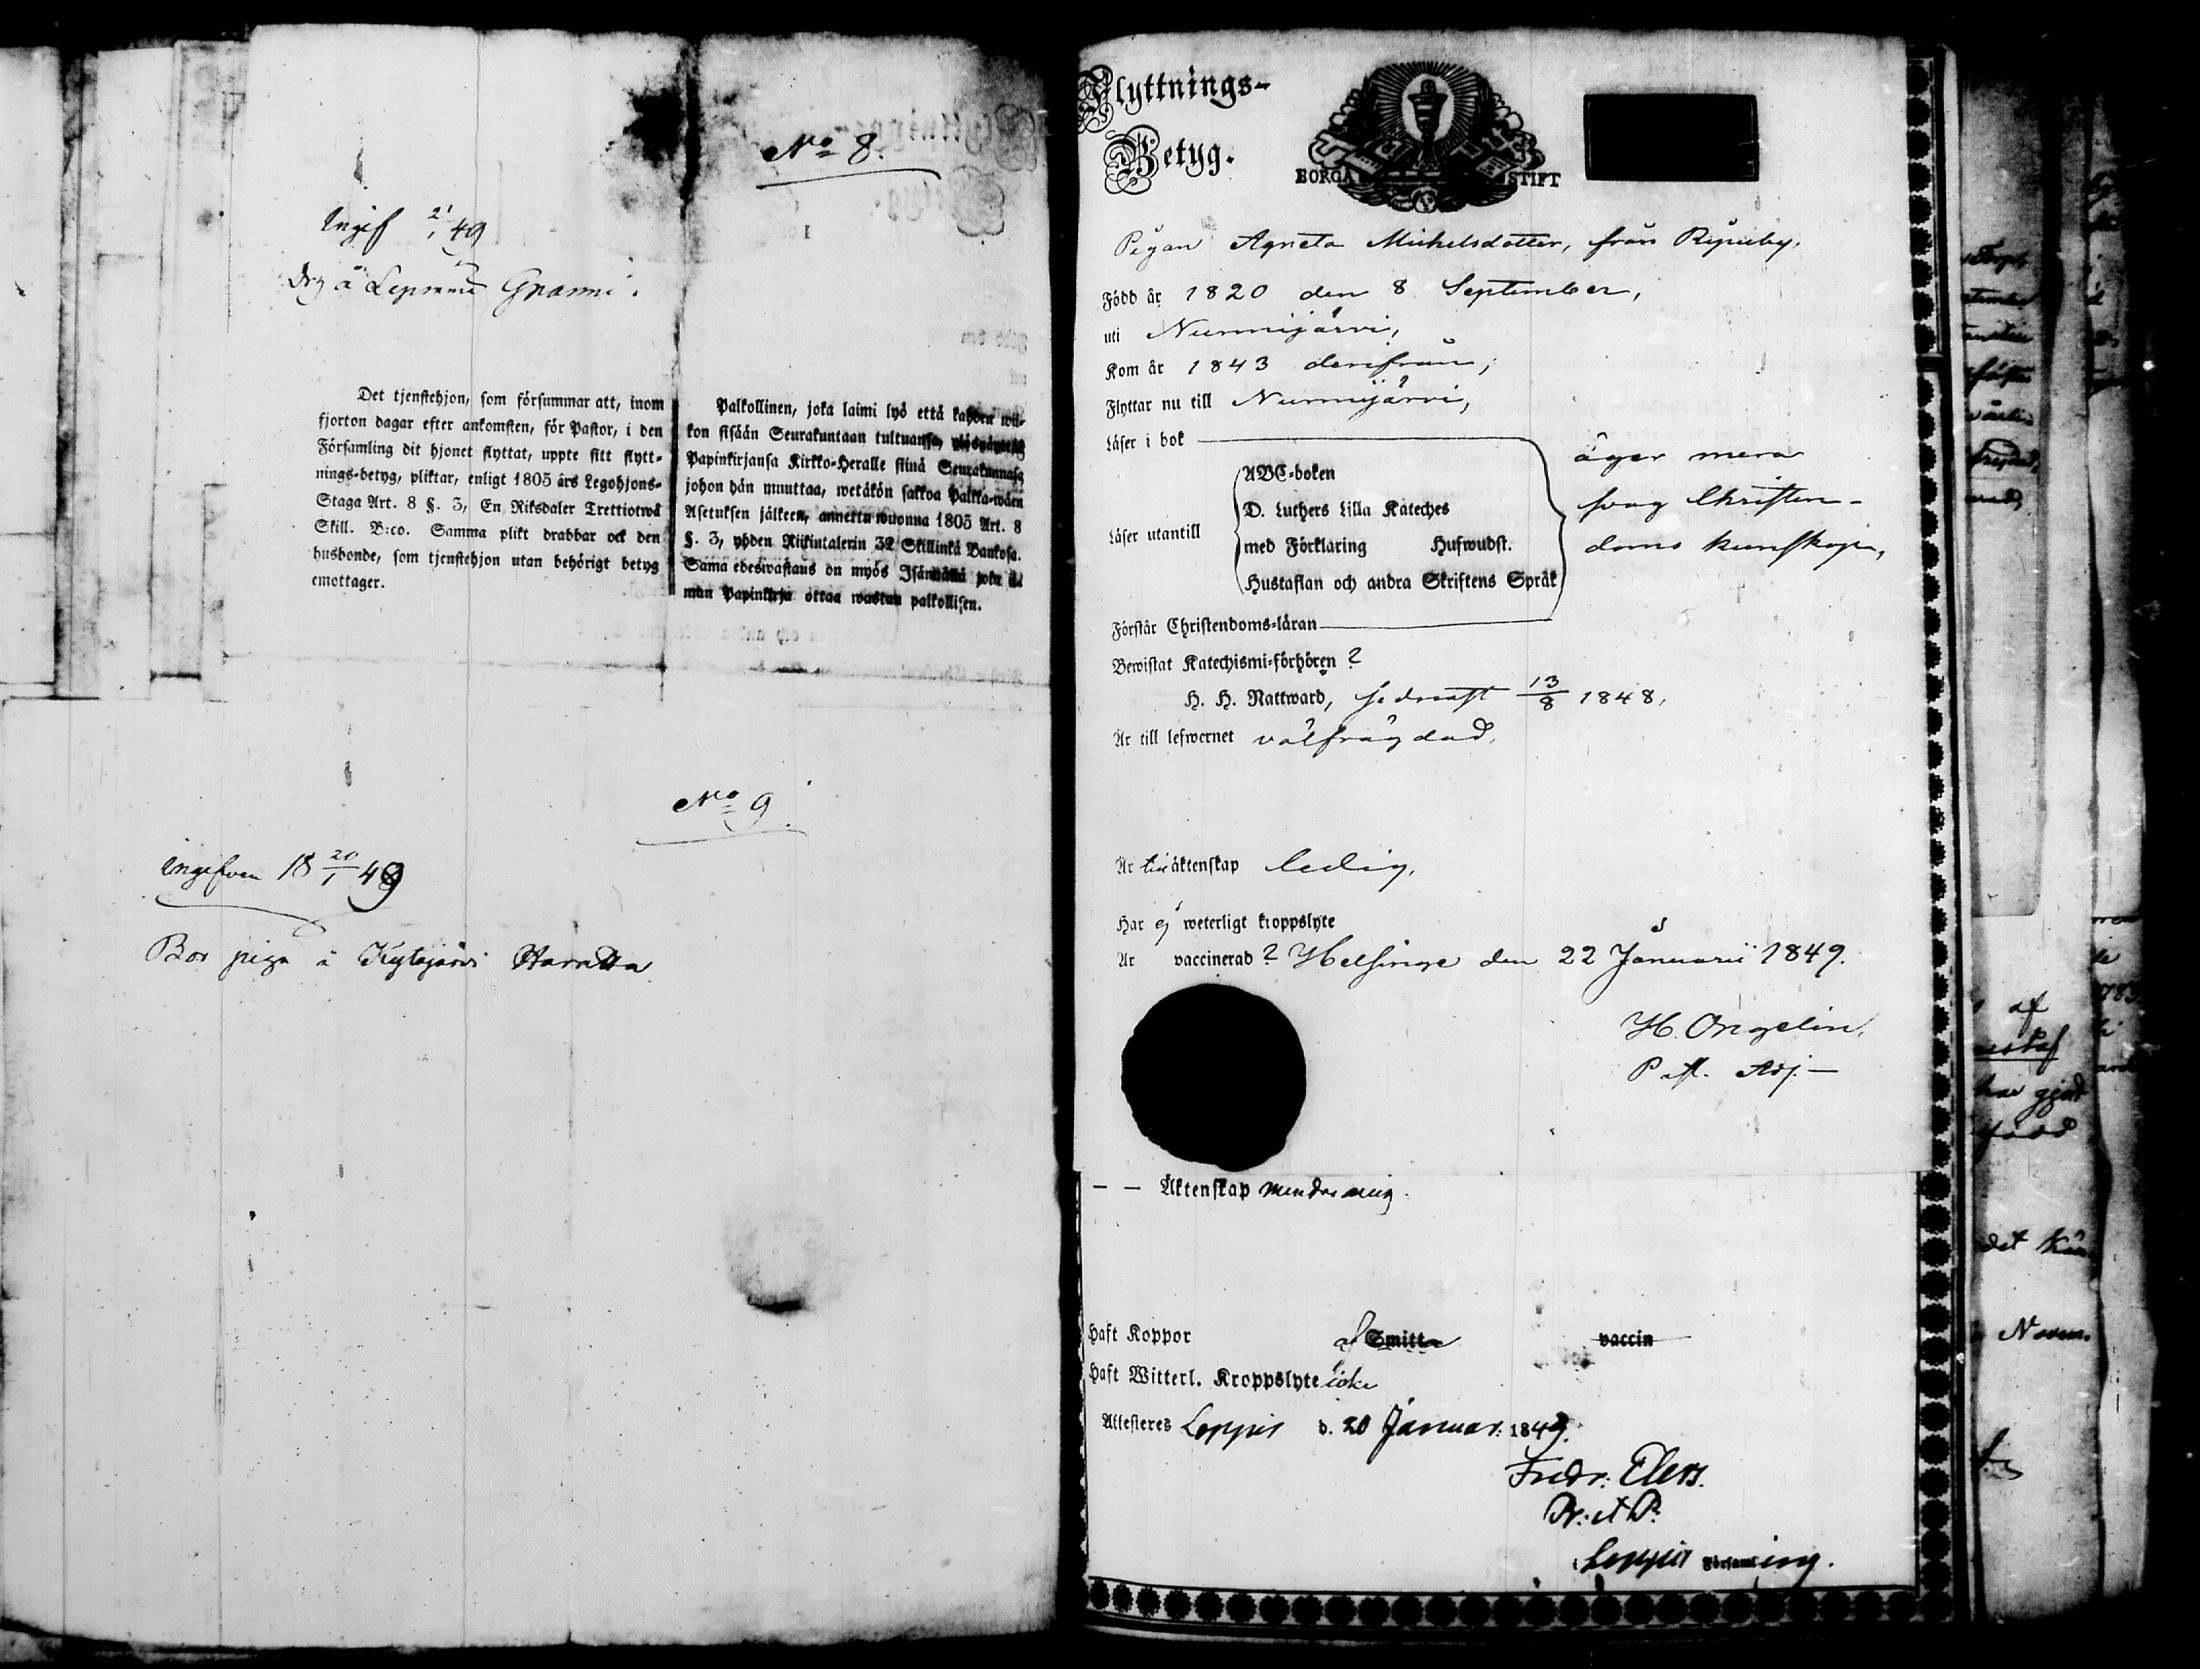 No 8.
Ingif 21/1 49
Drg å Lepsämä Granni.
Det tjenstehjon, som försummar att, inom
fjorton dagar efter ankomsten, för Pastor, i den
Församling dit hjonet flyttat, uppte sitt flytt-
nings-betyg, pliktar, enligt 1805 års Legohjons-
Staga Art. 8 §. 3, En Riksdaler Trettiotwå
Skill. B:co. Samma plikt drabbar ock den
husbonde, som tjenstehjon utan behörigt betyg
emottager.
Palkollinen, joka laimi lyö että kahden wii-
kon sisään Seurakuntaan tultuansa,
Papinkirjansa Kirkko-Heralle siinä Seurakunnasa
johon hän muuttaa, wetäkön sakkoa Palkka-wäen
Asetuksen jälkeen, annettu wuonna 1805 Art. 8
§. 3, yhden Riikintalerin 32 Skillinkä Bankosa.
Sama edeswastaus on myös Isännällä joka il-
man Papinkirja ottaa wastan palkollisen.
No 9.
Ingifven 18 20/1 49
Bor piga å Kytäjärvi
Flyttnings-
Betyg.
BORGÅ STIFT
Pigan Agneta Michelsdotter, från
Född år 1820 den 8 September,
uti Nurmijärvi,
Kom år 1843 derifrån,
Flyttar nu till Nurmijärvi,
Läser i bok
ABC-boken
D. Luthers Lilla Kateches
Läser utantill
med Förklaring Hufwudst.
Hustaflan och andra Skriftens Språk
äger mera
svag Christen-
doms kunskap,
Förstår Christendoms-läran
Bewistat Katechismi-förhören ?
H. H. Nattward, sednast 13/8 1848,
Är till lefwernet välfrägdad,
Är till äktenskap ledig,
Har ej weterligt kroppslyte
Är vaccinerad ? Helsinge den 22 Januarii 1849.
H. Ongelin,
Past. Adj.
— — Äktenskap minderårig.
Haft Koppor af Smitta vaccin
Haft Witterl. Kroppslyte icke
Attesteras Loppis d. 20 Januar: 1849.
Fredr: Elers.
Pr. et P.
i Loppis Församling.